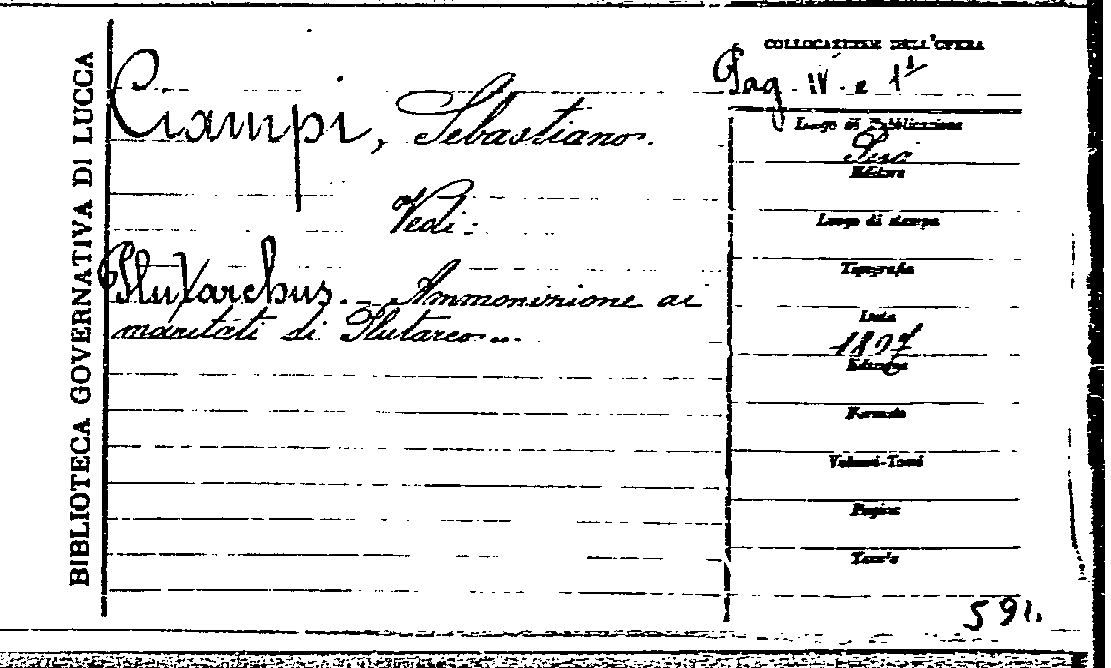 BIBLIOTECA GOVERNATIVA DI LUCCA
Ciampi, Sebastiano.
Vedi:
Plutarchus. - Ammonizione ai
maritati di Plutarco...
COLLOCAZIONE DELL'OPERA
Pag. IV. e 1
Luogo di Pubblicazione
Editore
Luogo di stampa
Tipografia
Data
Edizione
Formato
Volumi-Tomi
Pagine
591.